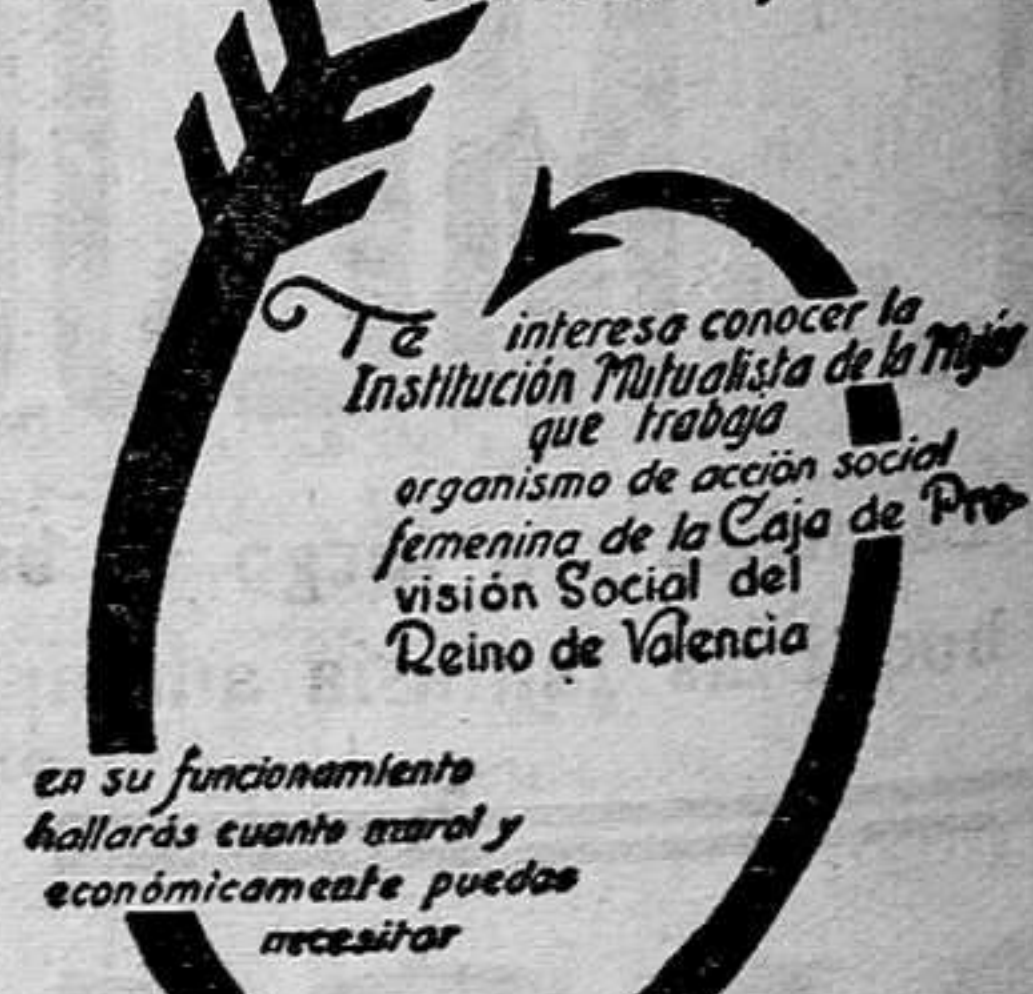 Te interesa conocer la
Institución Mutualista de la Mujer
que trabaja
organismo de acción social
femenina de la Caja de Pre-
visión Social del
Reino de Valencia
en su funcionamiento
hallarás cuanto moral y
económicamente puedas
necesitar